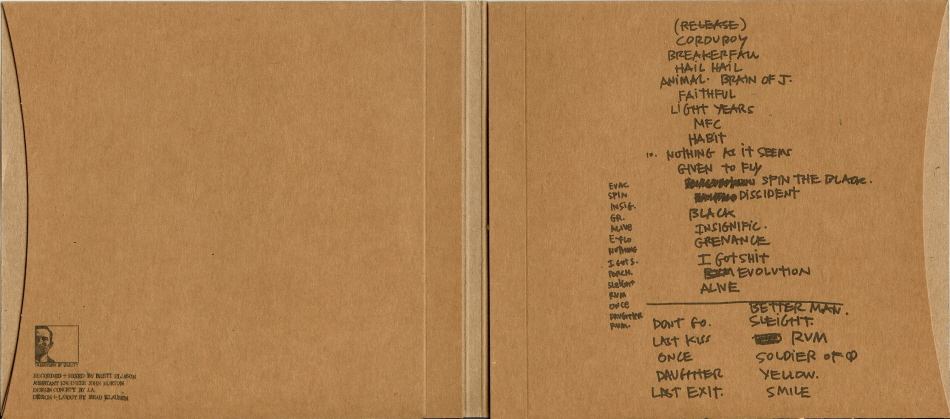 (RELEASE)
CORDUROY
BREAKERFALL
HAIL HAIL
ANIMAL. BRAIN OF J.
FAITHFUL
LIGHT YEARS
MFC
HABIT
10. NOTHING AS IT SEEMS
GIVEN TO FLY
SPIN THE BLACK.
DISSIDENT
BLACK
INSIGNIFIC.
GRENANCE
I GOT SHIT
EVOLUTION
ALIVE
EVAC
SPIN
INSIG.
GR.
ALIVE
E-FLO
NOTHING
I GOT S.
PORCH.
SLEIGHT
RVM
ONCE
DAUGHTER
RVM.
DONT GO.
LAST KISS
ONCE
DAUGHTER
LAST EXIT.
BETTER MAN.
SLEIGHT.
RVM
SOLDIER OF
YELLOW.
SMILE
RECORDED + MIXED BY BRETT ELIASON
ASSISTANT ENGINEER JOHN BURTON
DESIGN CONCEPT BY J.A.
DESIGN + LAYOUT BY BRAD KLAUSEN